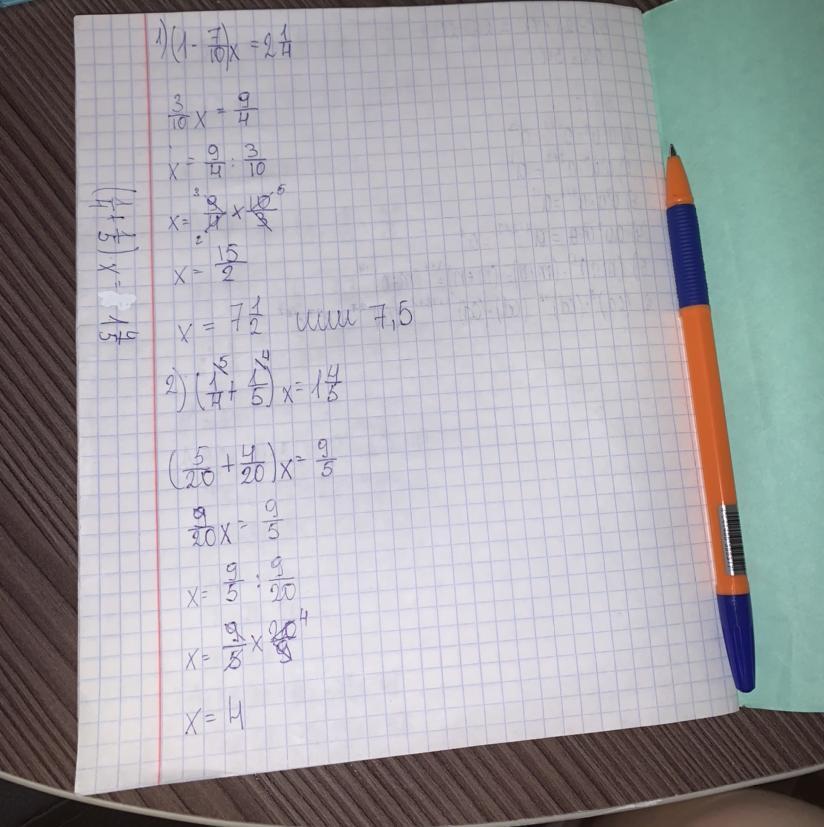 1) (1 - 7/10)x = 2 1/4
3/10 x = 9/4
x = 9/4 : 3/10
x = ³9/4₂ × 10⁵/3
x = 15/2
x = 7 1/2 или 7,5
2) (1/4 ⁵ + 1/5 ⁴) x = 1 4/5
(5/20 + 4/20) x = 9/5
9/20 x = 9/5
x = 9/5 : 9/20
x = 9/5 × 20⁴/9
x = 4
(1/4 + 1/5) x = 1 4/5